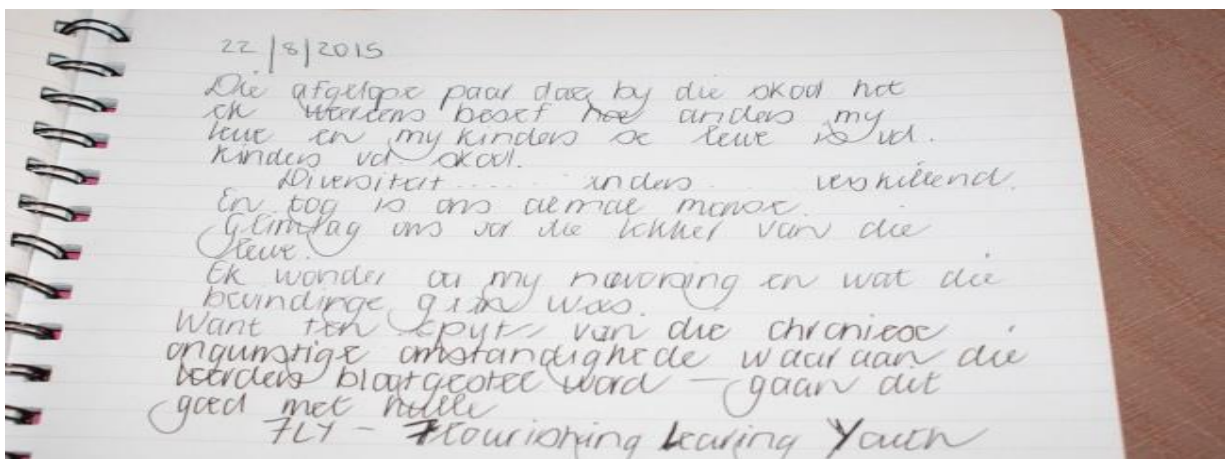 22/8/2015
Die afgelope paar dae by die skool het
ek weereens besef hoe anders my
lewe en my kinders se lewe is vd.
kinders vd skool.
Diversiteit..... anders... verskillend.
En tog is ons almal mense.
Glimlag ons vir die lekker van die
lewe.
Ek wonder oor my navorsing en wat die
bevindinge gaan wees.
Want ten spyte van die chroniese
ongunstige omstandighede waaraan die
leerders blootgestel word — gaan dit
goed met hulle
FLY – Flourishing Learning Youth